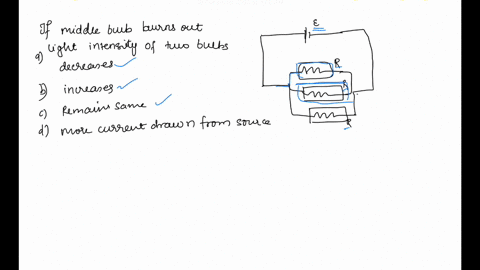 If middle bulb burns out
light intensity of two bulbs
a) decreases
b) increases
c) Remains same
d) more current drawn from source
E
R
R
R